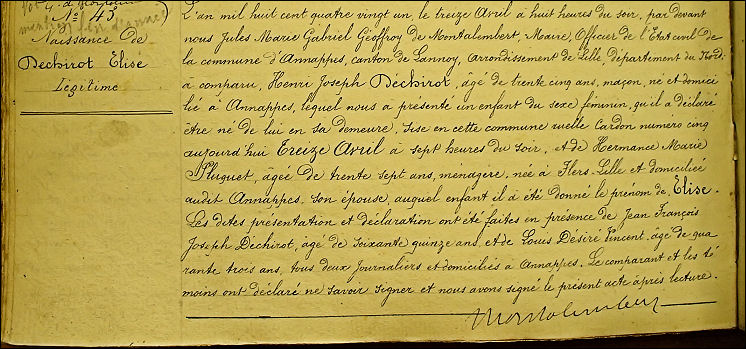 N° 45
Naissance de
Dechirot Elise
Légitime
L'an mil huit cent quatre vingt un, le treize Avril à huit heures du soir, par devant
nous Jules Marie Gabriel Géoffroy de Montalembert, Maire, Officier de l'Etat civil de
la commune d'Annappes, canton de Lannoy, arrondissement de Lille, département du Nord,
a comparu, Henri Joseph Dechirot, âgé de trente cinq ans, maçon, né et domici
lié à Annappes, lequel nous a présenté un enfant du sexe féminin, qu'il a déclaré
être né de lui en sa demeure, sise en cette commune ruelle Cardon numéro cinq
aujourd'hui treize Avril à sept heures du soir, et de Hermance Marie
Pluquet, âgée de trente sept ans, ménagère, née à Flers-Lille et domiciliée
audit Annappes, son épouse, auquel enfant il a été donné le prénom de Elise.
Les dites présentation et déclaration ont été faites en présence de Jean François
Joseph Dechirot, âgé de soixante quinze ans, et de Louis Désiré Vincent, âgé de qua
rante trois ans, tous deux journaliers et domiciliés à Annappes. Le comparant et les té
moins ont déclaré ne savoir signer et nous avons signé le présent acte après lecture.
Montalembert